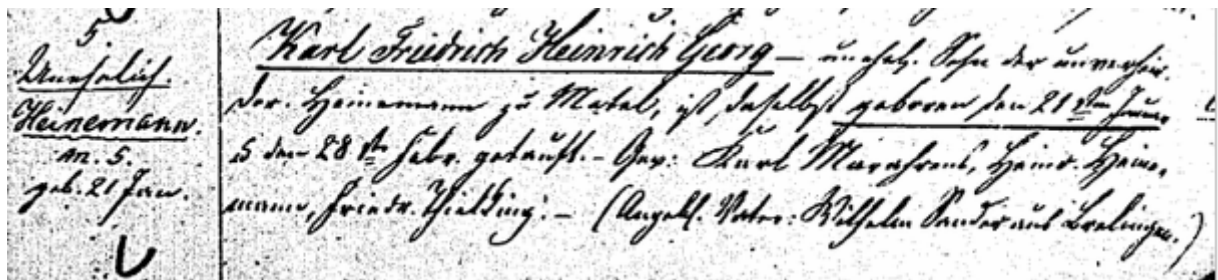 5
Unehelich.
Heinemann.
m. 5.
geb. 21 Jan.
Karl Friedrich Heinrich Georg – unehel. Sohn der unverheir.
Dor. Heinemann zu Metel, ist daselbst geboren den 21sten Januar
& den 28ste Febr. getauft. – Gev: Karl Marahrens, Heinr. Heine-
mann, Friedr. Thielding. – (Angebl. Vater: Wilhelm Sander aus Brelingen.)